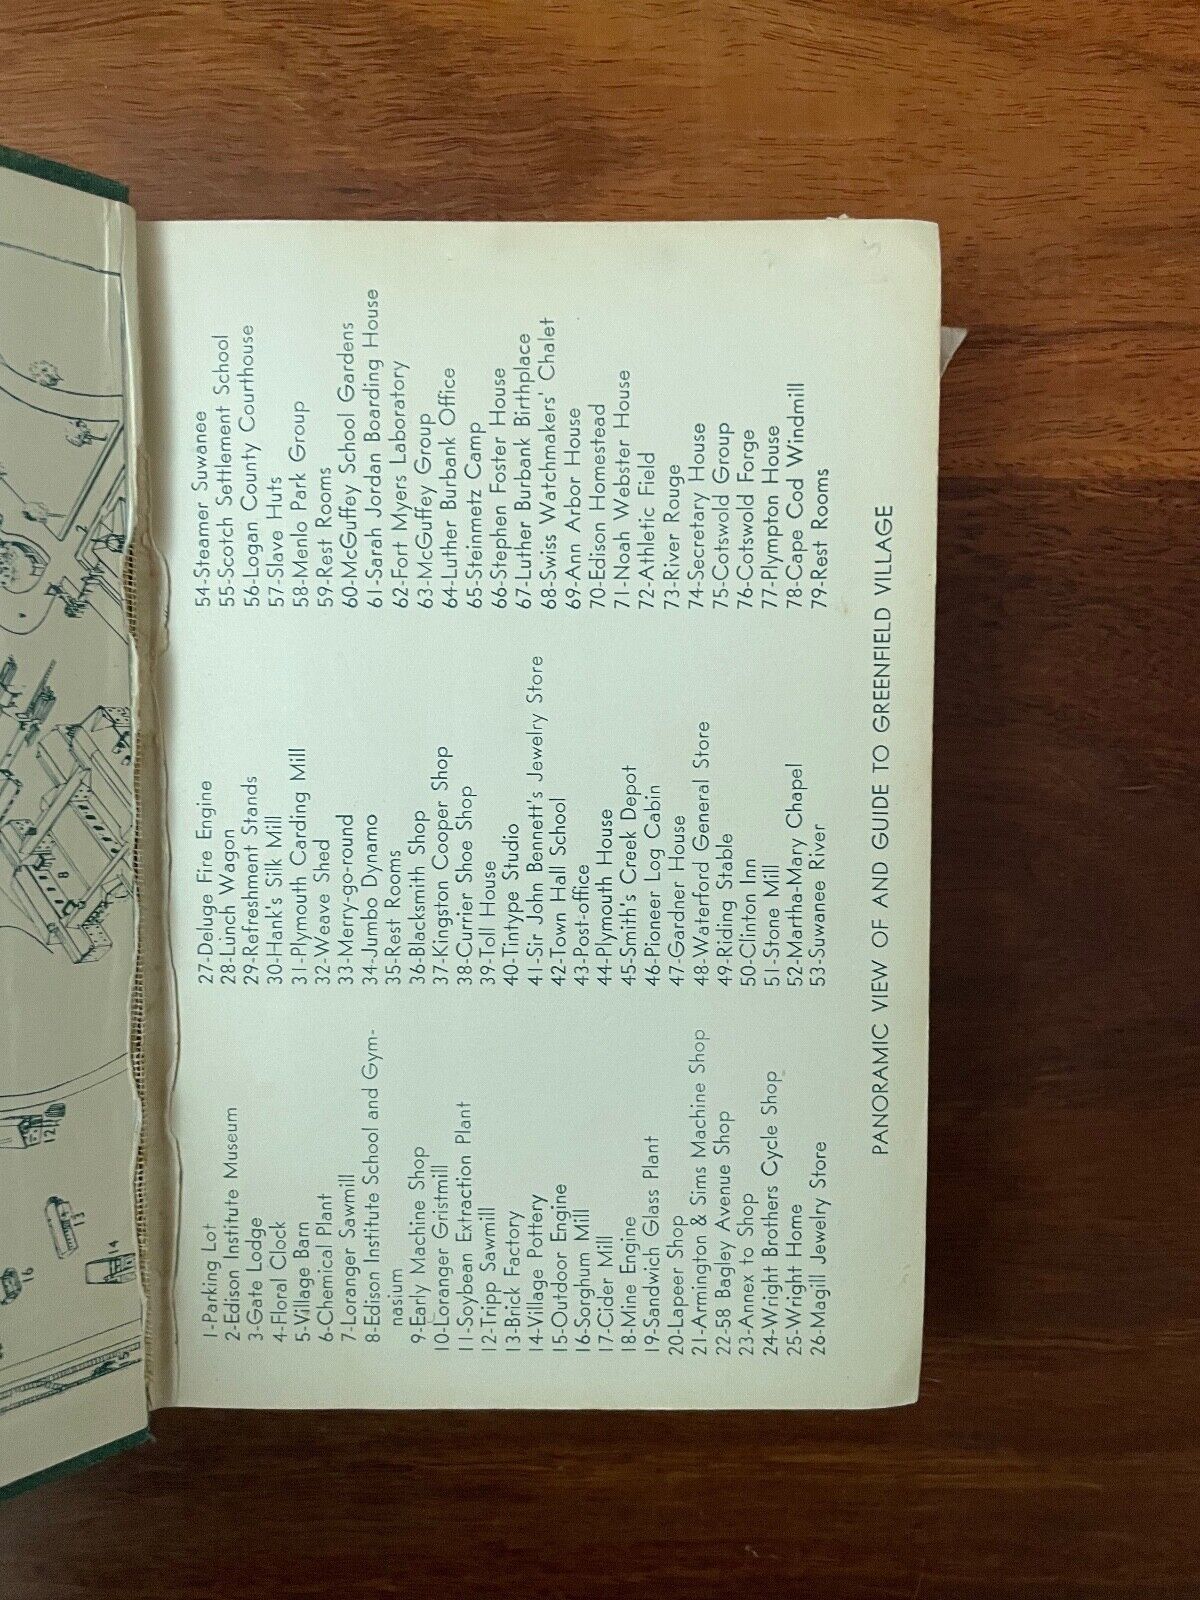 1-Parking Lot
2-Edison Institute Museum
3-Gate Lodge
4-Floral Clock
5-Village Barn
6-Chemical Plant
7-Loranger Sawmill
8-Edison Institute School and Gym-
nasium
9-Early Machine Shop
10-Loranger Gristmill
11-Soybean Extraction Plant
12-Tripp Sawmill
13-Brick Factory
14-Village Pottery
15-Outdoor Engine
16-Sorghum Mill
17-Cider Mill
18-Mine Engine
19-Sandwich Glass Plant
20-Lapeer Shop
21-Armington & Sims Machine Shop
22-58 Bagley Avenue Shop
23-Annex to Shop
24-Wright Brothers Cycle Shop
25-Wright Home
26-Magill Jewelry Store
27-Deluge Fire Engine
28-Lunch Wagon
29-Refreshment Stands
30-Hank's Silk Mill
31-Plymouth Carding Mill
32-Weave Shed
33-Merry-go-round
34-Jumbo Dynamo
35-Rest Rooms
36-Blacksmith Shop
37-Kingston Cooper Shop
38-Currier Shoe Shop
39-Toll House
40-Tintype Studio
41-Sir John Bennett's Jewelry Store
42-Town Hall School
43-Post-office
44-Plymouth House
45-Smith's Creek Depot
46-Pioneer Log Cabin
47-Gardner House
48-Waterford General Store
49-Riding Stable
50-Clinton Inn
51-Stone Mill
52-Martha-Mary Chapel
53-Suwanee River
54-Steamer Suwanee
55-Scotch Settlement School
56-Logan County Courthouse
57-Slave Huts
58-Menlo Park Group
59-Rest Rooms
60-McGuffey School Gardens
61-Sarah Jordan Boarding House
62-Fort Myers Laboratory
63-McGuffey Group
64-Luther Burbank Office
65-Steinmetz Camp
66-Stephen Foster House
67-Luther Burbank Birthplace
68-Swiss Watchmakers' Chalet
69-Ann Arbor House
70-Edison Homestead
71-Noah Webster House
72-Athletic Field
73-River Rouge
74-Secretary House
75-Cotswold Group
76-Cotswold Forge
77-Plympton House
78-Cape Cod Windmill
79-Rest Rooms
PANORAMIC VIEW OF AND GUIDE TO GREENFIELD VILLAGE
2
8
12
13
14
16
15